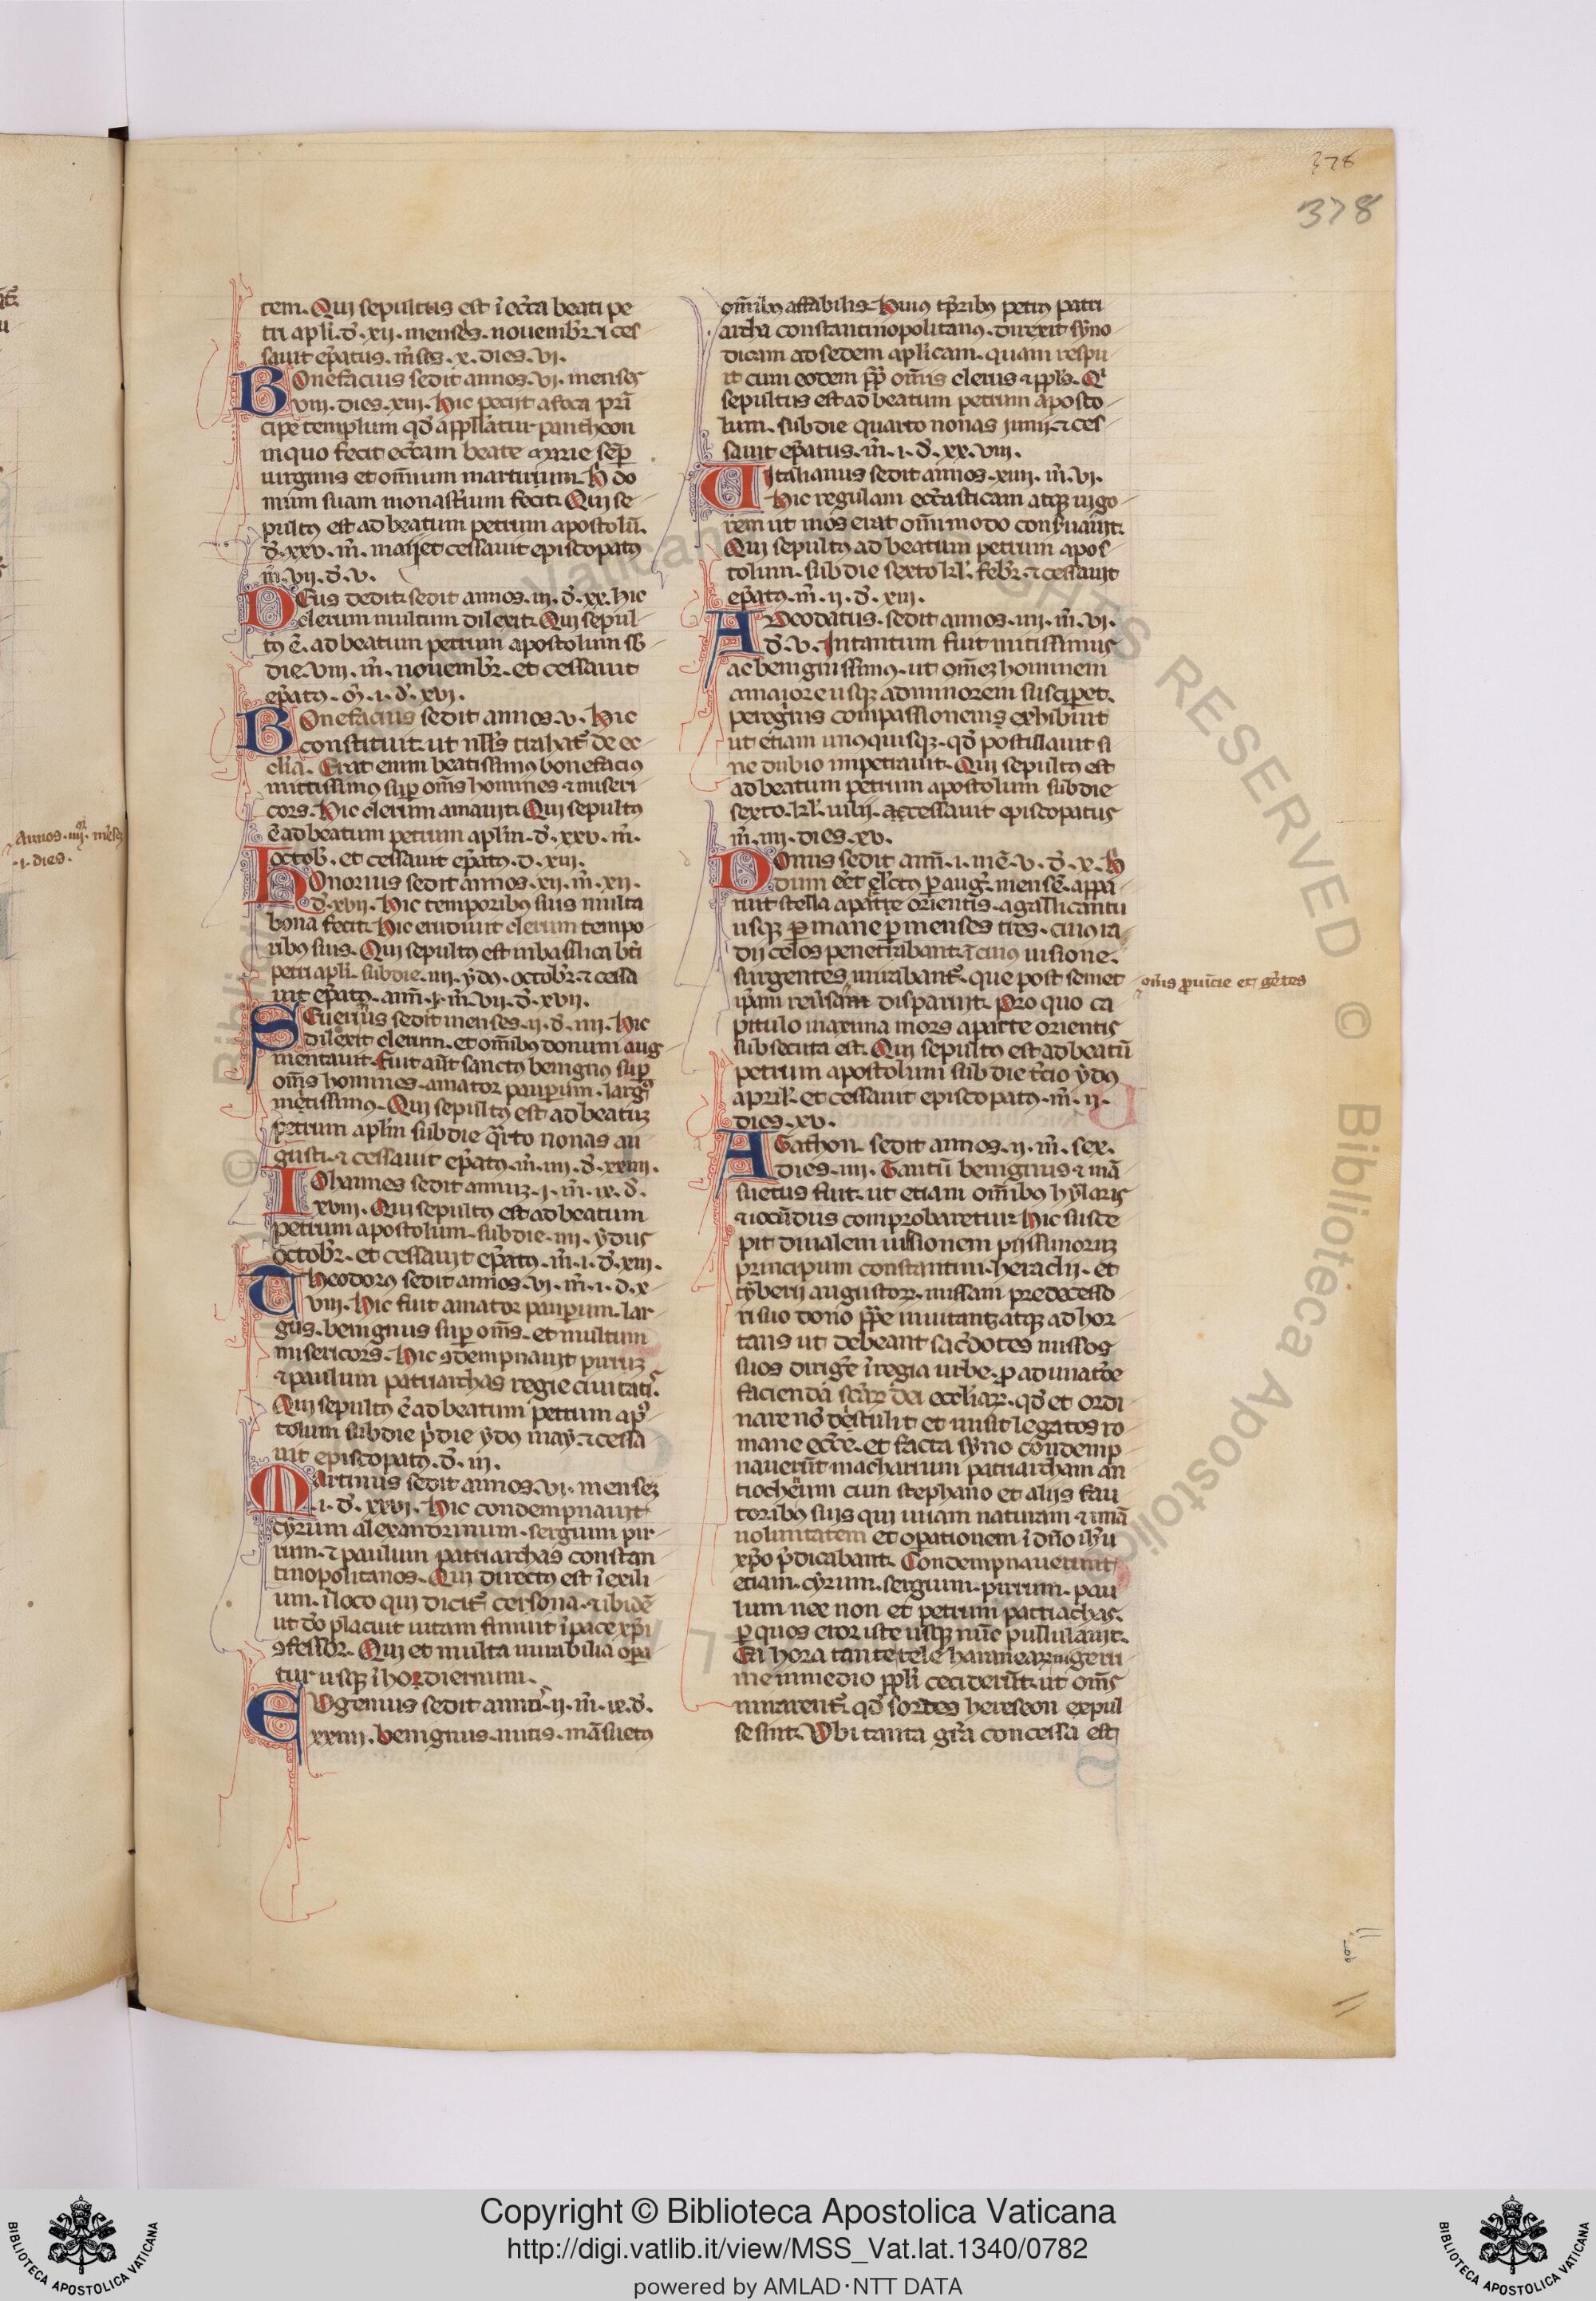 378
378
tem. Qui sepultus est ĩ eccͣa beati pe
tri apl̃i. d̃. xii. menses. nouemb̃r. ⁊ ces
sauit ep̃atus. m̃ses. x. dies. vi.
BOnefacius sedit annos. vi. menses
viii. dies. xiii. Hic peciit a foca pri͂
cipe templum qd̃ appllatur pantheon
in quo fecit eccãm beate marie semp̃
uirginis et om̃ium martirum. H̃ do
mum suam monasterium fecit. Qui se
pultꝰ est ad beatum petrum apostolũ.
d̃. xxv. m̃. maij et cessauit episcopatꝰ
m̃. vii. d̃. v.
DEus dedit sedit annos. iii. d̃. xx. hic
clerum multum dilexit. Qui sepul
tꝰ ẽ. ad beatum petrum apostolum sb̃
die. viii. m̃. nouemb̃r. et cessauit
ep̃atꝰ. m̃. i. d̃. xvi.
BOnefacius sedit annos. v. Hic
constituit. ut nl̃ls trahat᷑ de ec
clia. Erat enim beatissimꝰ bonefaciꝰ
mitissimꝰ sup̃ om̃s homines ⁊ miseri
cors. Hic clerum amauit. Qui sepultꝰ
ẽ ad beatum petrum apl̃m. d̃. xxv. m̃.
octob̃. et cessauit ep̃atꝰ. d. xiii.
HOnorius sedit annos. xii. m̃. xii.
d̃. xvii. Hic temporibꝰ suis multa
bona fecit. Hic erudiuit clerum tempo
ribꝰ suis. Qui sepultꝰ est in basilica bti
petri apl̃i. sub die. iiii. ydꝰ. octob̃r. ⁊ cessa
uit ep̃atꝰ. ann̄. i. m̃. vii. d̃. xvii.
SEuerinus sedit menses. ii. d̃. iiii. Hic
dilexit clerum. et om̃ibꝰ donum aug
mentauit. Fuit aũt sanctꝰ benignꝰ sup̃
om̃s homines. amator paup̃um. largꝰ
mitissimꝰ. Qui sepultꝰ est ad beatuꝫ
petrum apl̃m sub die qͣrto nonas au
gusti. ⁊ cessauit ep̃atꝰ. m̃. iiii. d̃. xxiiii.
IOhannes sedit annuꝫ. i. m̃. ix. d̃.
xviii. Qui sepultꝰ est ad beatum
petrum apostolum. sub die. iiii. ydus
octob̃r. et cessauit ep̃atꝰ. m̃. i. d̃. xiii.
THeodorꝰ sedit annos. vi. m̃. i. d. x
viii. Hic fuit amator paup̃um. lar
gus. benignus sup̃ om̃s. et multum
misericors. Hic ꝯdempnauit piruꝫ
⁊ paulum patriarchas regie ciuitatis.
Qui sepultꝰ ẽ ad beatum petrum apꝰ
tolum sub die p̃die ydꝰ may. ⁊ cessa
uit episcopatꝰ. d̃. iii.
MArtinus sedit annos. vi. menseꝫ
i. d̃. xxvi. Hic condempnauit
cyrum alexandrinum. sergium pir
rum. ⁊ paulum patriarchas constan
tinopolitanos. Qui directꝰ est ĩ exili
um. ĩ loco qui dicit᷑ cersona. ⁊ ibidẽ
ut do placuit uitam finiuit ĩ pace xp̃i
ꝯfessor. Qui et multa mirabilia opa
tur usqꝫ ĩ hodiernum.
EVgenius sedit annis. ii. m̃. ix. d̃.
xxiiii. benignus. mitis. mãsuetꝰ
om̃ibꝰ affabilis. Huiꝰ tp̃ribꝰ petrꝰ patri
archa constantinopolitanꝰ. direxit syno
dicam ad sedem apl̃icam. quam respu
it cum eodem pp̃ om̃is clerus ⁊ ppl̃s. Qi
sepultus est ad beatum petrum aposto
lum. sub die quarto nonas junij. ⁊ ces
sauit ep̃atus. m̃. i. d̃. xx. viii.
UItalianus sedit annos. xiiii. m̃. vi.
Hic regulam eccãsticam atqꝫ uigo
rem ut mos erat om̃imodo conseruauit.
Qui sepultꝰ ad beatum petrum apos
tolum. sub die sexto kl̃. feb̃r. ⁊ cessauit
ep̃atꝰ. m̃. ii. d̃. xiii.
ADeodatus. sedit annos. iiii. m̃. vi.
d̃. v. Intantum fuit mitissimus
ac benignissimꝰ. ut om̃eꝫ hominem
a maiore usqꝫ ad minorem suscip̃et.
peregrinis compassionem exhibuit
ut etiam unꝰquisqꝫ. qd̃ postillauit si
ne dubio impetrauit. Qui sepultꝰ est
ad beatum petrum apostolum sub die
sexto. kl̃. iulij. ac cessauit episcopatus
m̃. iiii. dies. xv.
DOnus sedit ann̄. i. mẽ. v. d̃. x. H̃
dum eẽt elc̃tꝰ p aug̃. mensẽ. appa
ruit stella a parte orientis. a galli cantu
usqꝫ p mane p menses tres. cuiꝰ ra
dij celos penetrabant. ĩ cuiꝰ uisione.
surgentes mirabant᷑. que post semet
ip̃am reũsa disparuit. Pro quo ca
pitulo maxima mors a parte orientis
subsecuta est. Qui sepultꝰ est ad beatũ
petrum apostolum sub die tc̃io ydꝰ
april̃. et cessauit episcopatꝰ. m̃. ii.
dies. xv.
AGathon. sedit annos. ii. m̃. sex.
dies. iiii. Tantũ benignus ⁊ mã
suetus fuit. ut etiam om̃ibꝰ hylaris
⁊ iocũdus comprobaretur. Hic susce
pit diualem iussionem pijssimoruꝫ
principum constantini. heraclij. et
tyberij augustoꝝ. missam predecesso
ri suo dono pp̃e inuitantꝫ atqꝫ ad hor
tans ut debeant sac̃dotes missos
suos dirig̃e ĩ regia urbe. p adunatõe
facienda sc̃aꝝ dei eccliaꝝ. qd̃ et ordi
nare nõ destulit et misit legatos ro
mane ecc̃e. et facta syno condemp
nauerũt macharium patriarcham an
tiochenũ cum stephano et alijs fau
toribꝰ suis qui unam naturam ⁊ unã
uoluntatem et opationem ĩ dño ihũ
xp̃o p̃dicabant. Condempnauerunt
etiam. cyrum. sergium. pirrum. pau
lum nec non et petrum patriachas.
p quos error iste usqꝫ nũc pullulauit.
Ea hora tante tele haranearum geru
me in medio ppl̃i ceciderũt. ut om̃s
mirarent᷑. qd̃ sordes hereseon expul
se sint. Vbi tanta gr̃a concessa est
om̃is p̃uicie et gẽtes
annos. iiii. m̃ses
.i. dies.
© Biblioteca Apostolica Vaticana
Copyright © Biblioteca Apostolica Vaticana
http://digi.vatlib.it/view/MSS_Vat.lat.1340/0782
powered by AMLAD·NTT DATA
BIBLIOTECA APOSTOLICA VATICANA
BIBLIOTECA APOSTOLICA VATICANA